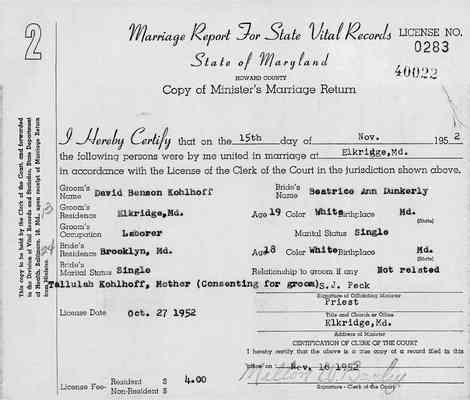 2
Marriage Report For State Vital Records LICENSE NO.
0283
State of Maryland
40022
HOWARD COUNTY
Copy of Minister's Marriage Return
I Hereby Certify that on the 15th day of Nov. 1952
the following persons were by me united in marriage at Elkridge,Md.
in accordance with the License of the Clerk of the Court in the jurisdiction shown above.
Groom's Name David Benson Kohlhoff Bride's Name Beatrice Ann Dunkerly
Groom's Residence Elkridge,Md. Age 19 Color White Birthplace Md. (State)
Groom's Occupation Laborer Marital Status Single
Bride's Residence Brooklyn, Md. Age 18 Color White Birthplace Md. (State)
Bride's Marital Status Single Relationship to groom if any Not related
Tallulah Kohlhoff, Mother (Consenting for groom) S.J. Peck
Signature of Officiating Minister
License Date Oct. 27 1952 Priest
Title and Church or Office
Elkridge,Md.
Address of Minister
CERTIFICATION OF CLERK OF THE COURT
I hereby certify that the above is a true copy of a record filed in this
office on Nov. 18 1952
License Fee- Resident $ 4.00
Non-Resident $
Signature - Clerk of the Court
This copy to be held by the Clerk of the Court, and forwarded
to the Division of Vital Records and Statistics, State Department
of Health, Baltimore, 18, Md., upon receipt of Marriage Return
from Minister.